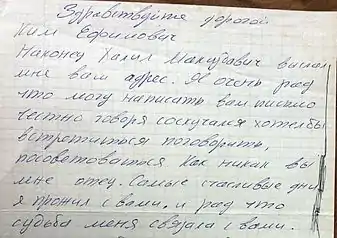 Здравствуйте дорогой
Ким Ефимович
Наконец Халил Махмудавич выслал
мне вам адрес. Я очень рад
что могу написать вам письмо
честно говоря соскучался хотелбы
встретиться поговорить,
посоветоваться как никак вы
мне отец. Самые счасливые дни
я прожил с вами, и рад что
судьба меня связала с вами.